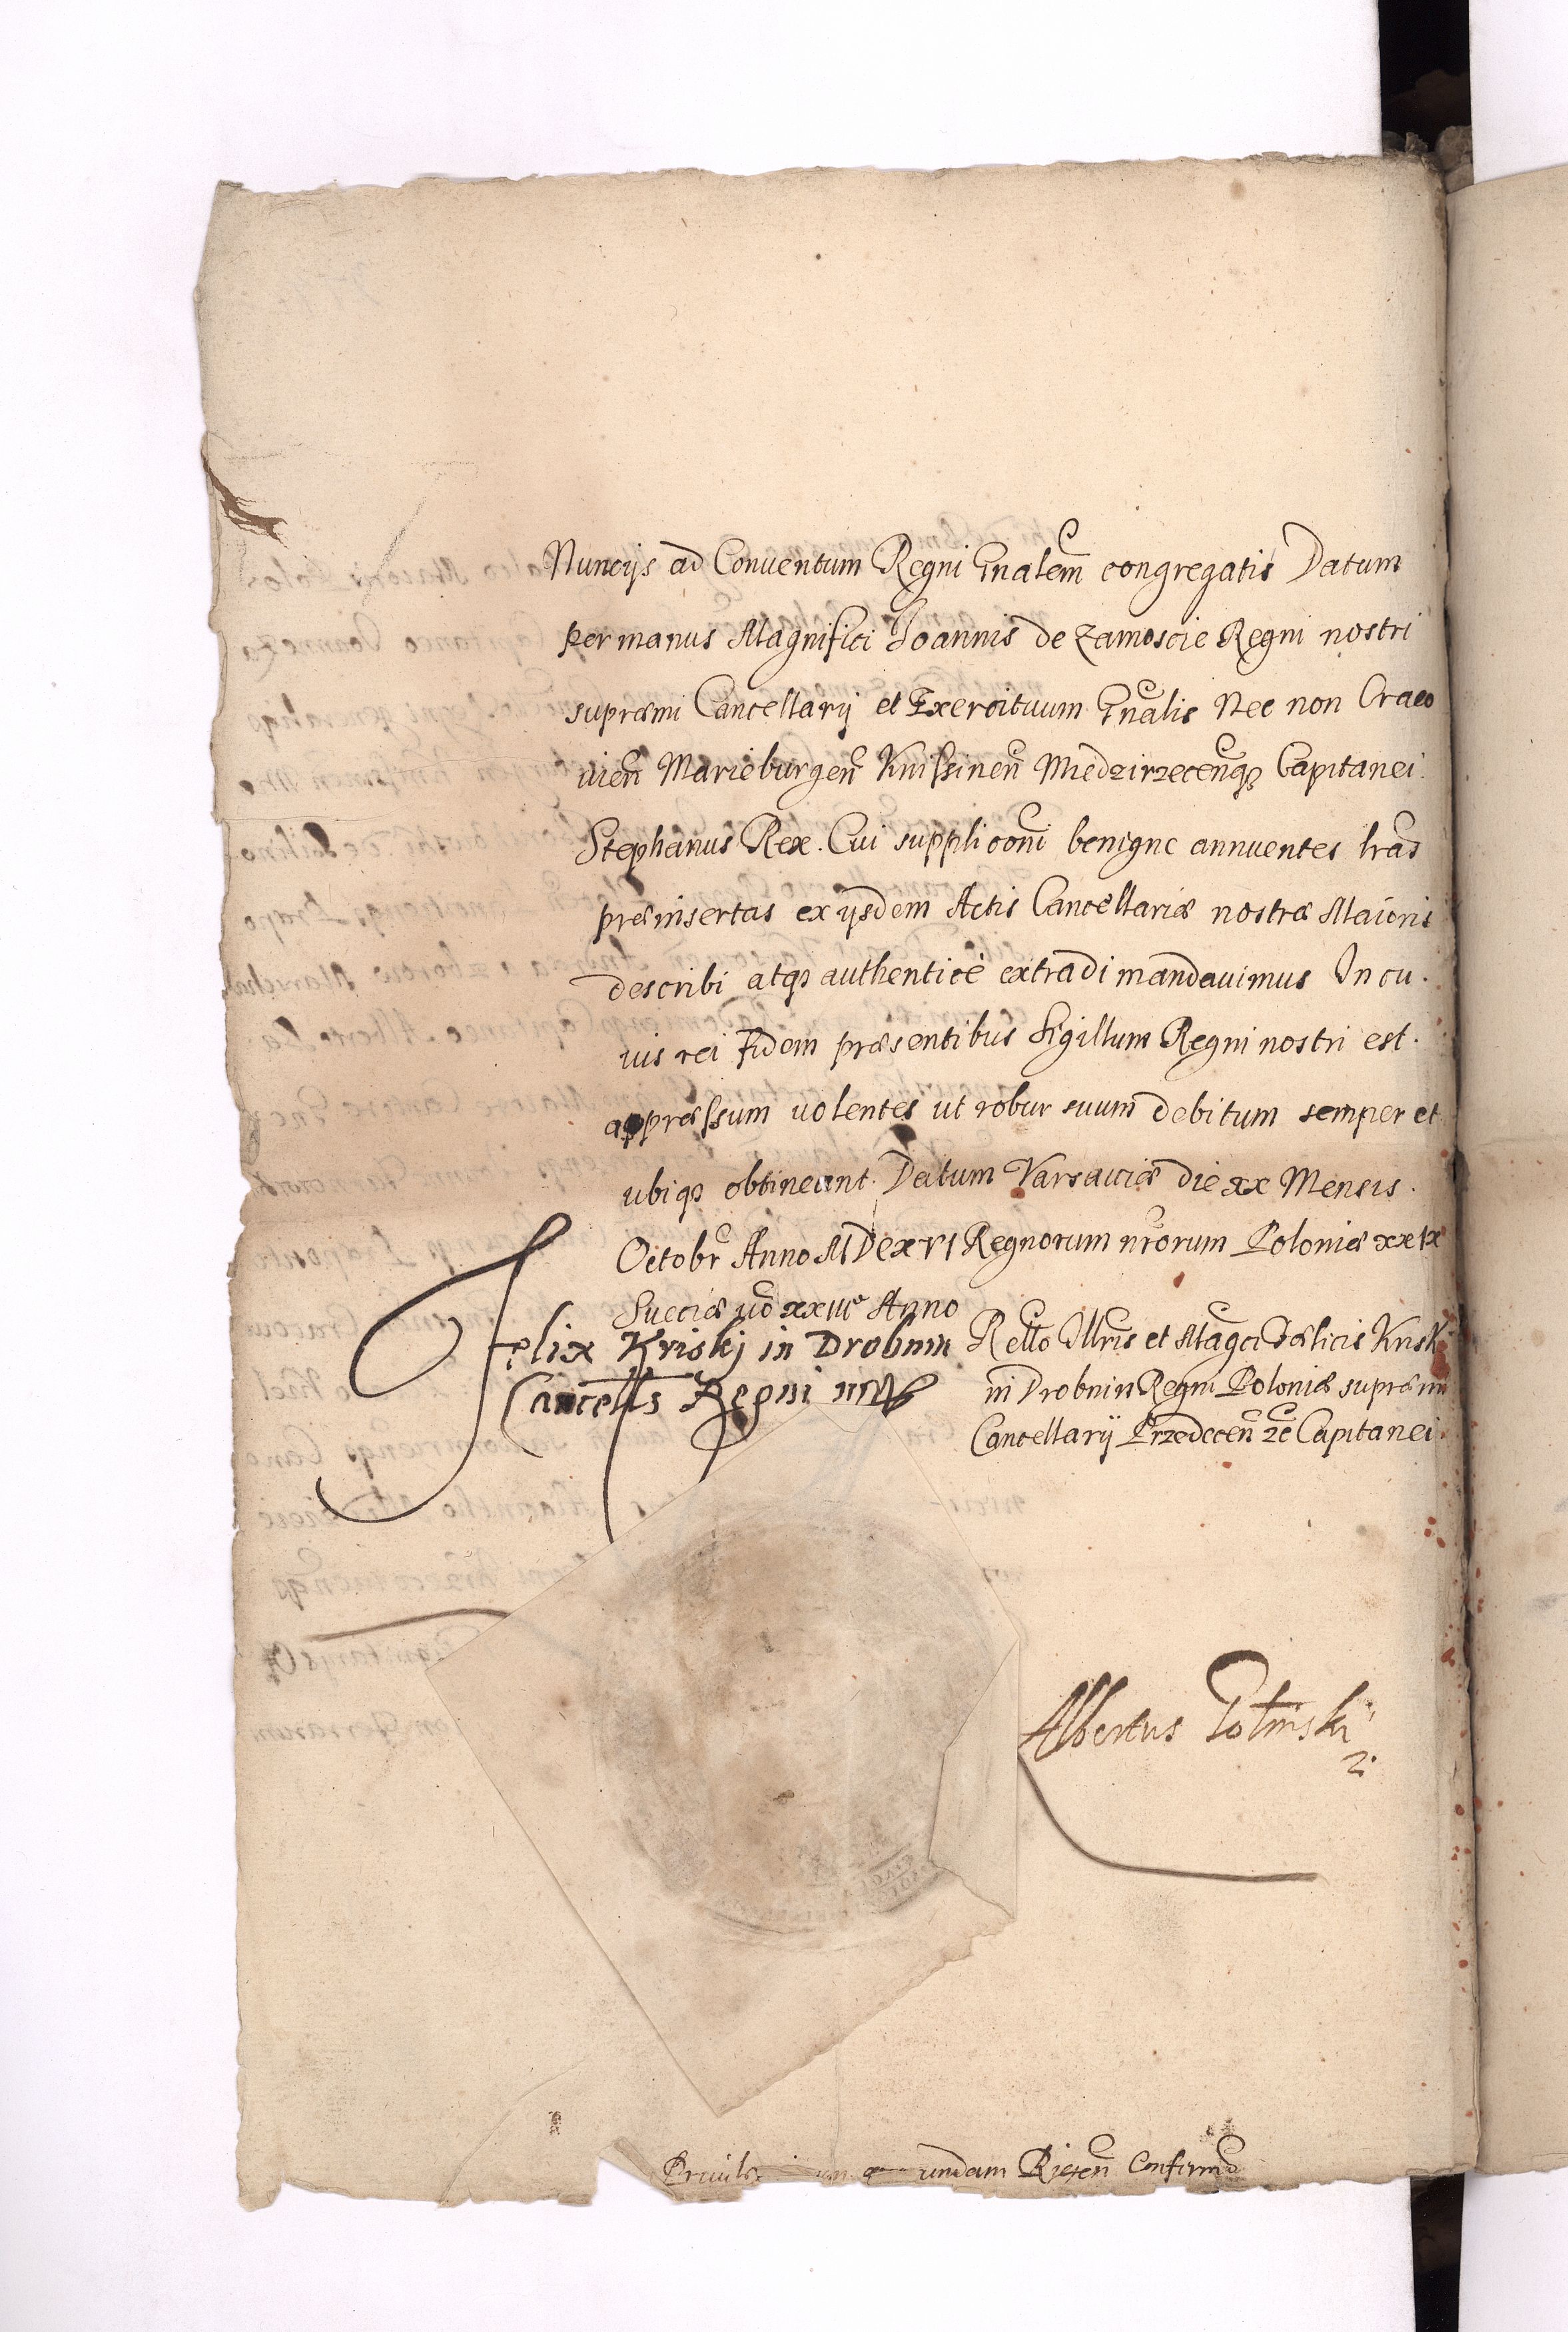 Nuncijs ad Conuentum Regni Gnalem congregatis Datum
per manus Magnifici Joannis de Zamoscie Regni nostri
supræmi Cancellarij et Exercituum Gnalis Nec non Craco
uien Marieburgen Knissinen Miedzirzecenqȝ Capitanei.
Stephanus Rex. Cui supplicõni benigne annuentes lr̃as
præinsertas ex ijsdem Actis Cancellariæ nostræ Maioris
describi atqȝ authenticè extradi mandauimus In cu.
uis rei fidem præsentibus Sigillum Regni nostri est.
appræssum uolentes ut robur suum debitum semper et
ubiqȝ obtineant. Datum Varsauiæ die xx Mensis.
Octobr Anno MDCXVI Regnorum nr̃orum Poloniæ xxix
Sueciæ uo xxiii Anno
Felix Kriskj in Drobnin
Cancells Regni
Rello Illris et Magci Fælicis Kriski
in Drobnin Regni Poloniæ supræmi
Cancellarij Przedecen zc Capitanei.
Albertus
undam Rigen Confirmo